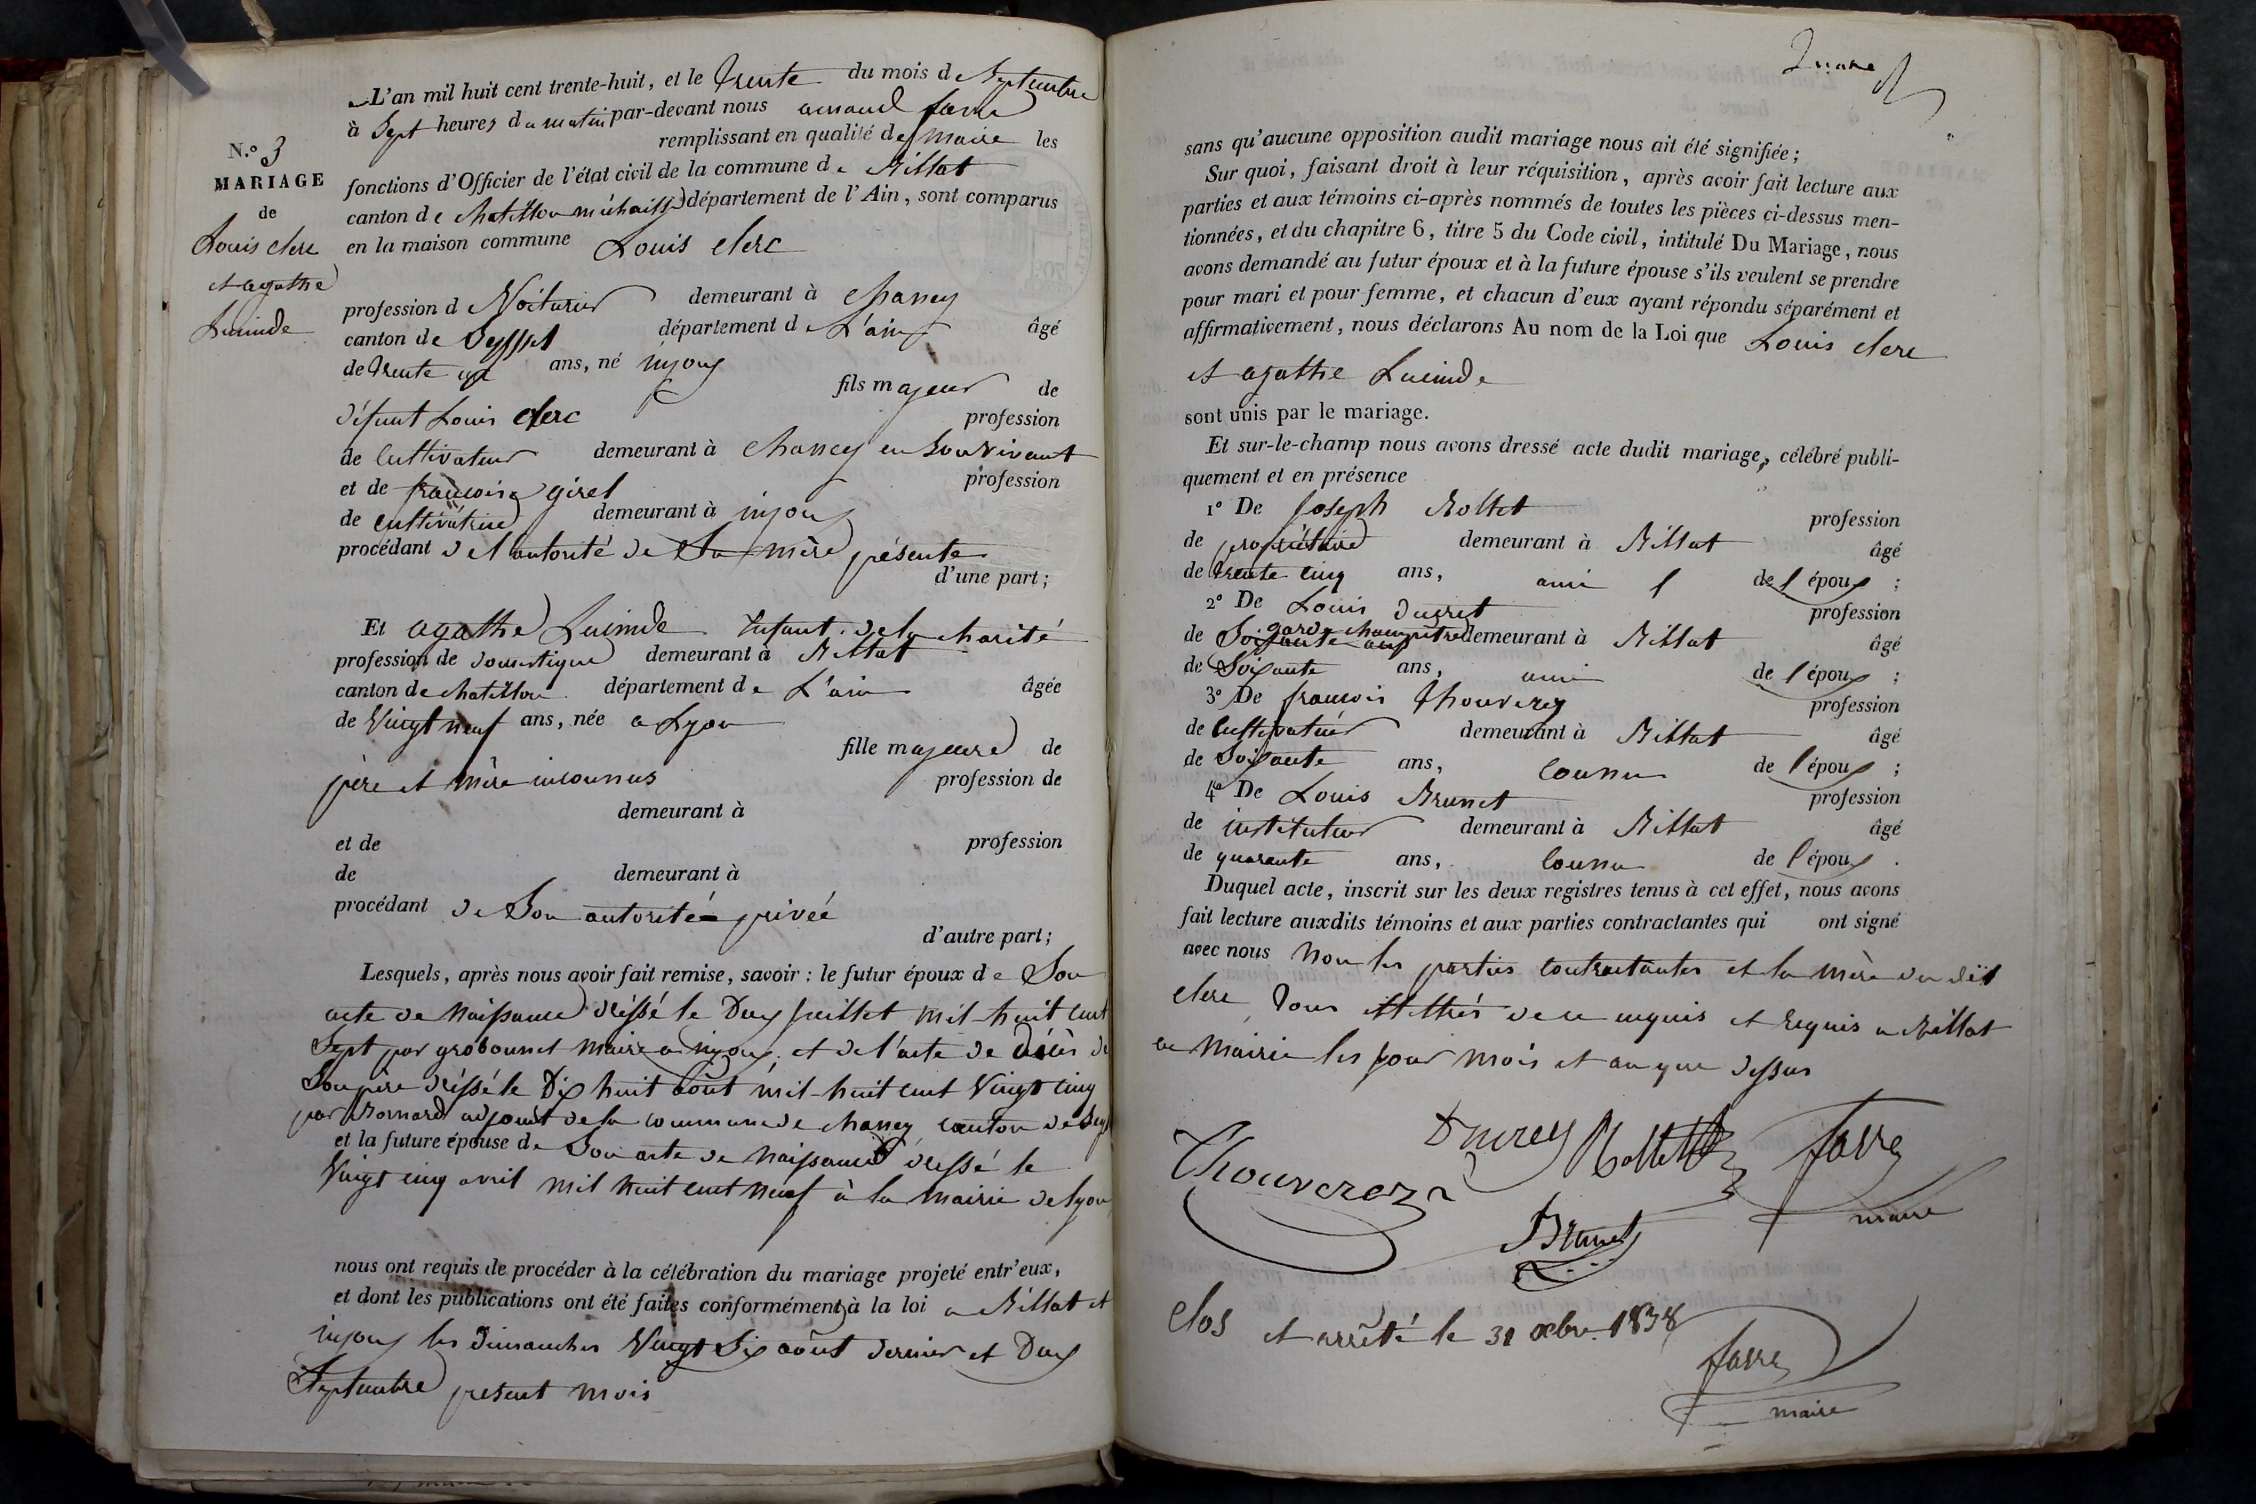 L'an mil huit cent trente-huit, et le trente du mois de Septembre
à Sept heures du matin par-devant nous arnaud favre
remplissant en qualité de maire les
N.º 3
MARIAGE
de
Louis clerc
et agathe
Lucinde
fonctions d'Officier de l'état civil de la commune de Billiat
canton de chatillon michaille département de l'Ain, sont comparus
en la maison commune Louis clerc
profession de Voiturier demeurant à chaney
canton de Seyssel département de L'ain âgé
de trente un ans, né injoux
fils majeur de
défunt Louis clerc profession
de cultivateur demeurant à chaney en Son vivant
et de francoise girel profession
de cultivatrice demeurant à injoux
procédant de l'autorité de Sa mère présente
d'une part;
Et agathe Lucinde Enfant de la charité
profession de domestique demeurant à Billiat
canton de chatillon département de L'ain âgée
de Vingt neuf ans, née a Lyon
fille majeure de
père et mère inconnus profession de
demeurant à
et de profession
de demeurant à
procédant de Son autorité privée
d'autre part;
Lesquels, après nous avoir fait remise, savoir : le futur époux de Son
acte de naissance dréssé le Deux Juillet mil huit cent
Sept par grobonnet maire a injoux et de l'acte de décès de
Son père dréssé le Dix huit août mil huit cent Vingt cinq
par adjoint de la commune de chaney canton de Seys
et la future épouse de Son acte de naissance dressé le
Vingt cinq avril mil huit cent neuf à la mairie de lyon
nous ont requis de procéder à la célébration du mariage projeté entr'eux,
et dont les publications ont été faites conformément à la loi a Billiat et
injoux les Dimanches Vingt Six août dernier et Deux
Septembre présent mois
sans qu'aucune opposition audit mariage nous ait été signifiée;
Sur quoi, faisant droit à leur réquisition, après avoir fait lecture aux
parties et aux témoins ci-après nommés de toutes les pièces ci-dessus men-
tionnées, et du chapitre 6, titre 5 du Code civil, intitulé Du Mariage, nous
avons demandé au futur époux et à la future épouse s'ils veulent se prendre
pour mari et pour femme, et chacun d'eux ayant répondu séparément et
affirmativement, nous déclarons Au nom de la Loi que Louis clerc
et agathe Lucinde
sont unis par le mariage.
Et sur-le-champ nous avons dressé acte dudit mariage, célébré publi-
quement et en présence
1º De Joseph Rollet profession
de propriétaire demeurant à Billiat âgé
de trente cinq ans, ami de l'époux ;
2º De Louis Ducret profession
garde champêtre
de Soixante ans demeurant à Billiat âgé
de Soixante ans, ami de l'époux ;
3º De francois Thouverez profession
de cultivateur demeurant à Billiat âgé
de Soixante ans, connu de l'époux ;
4º De Louis Brunet profession
de instituteur demeurant à Billiat âgé
de quarante ans, connu de l'époux .
Duquel acte, inscrit sur les deux registres tenus à cet effet, nous avons
fait lecture auxdits témoins et aux parties contractantes qui ont signé
avec nous non les parties contractantes et la mère du dit
clerc, pour illettrés de ce enquis et requis a Billiat
en mairie les jour mois et an que dessus
Thouverez
Ducrey
Rollet
favre
maire
Brunet
Clos et arrêté le 31 xbre. 1838
favre
maire